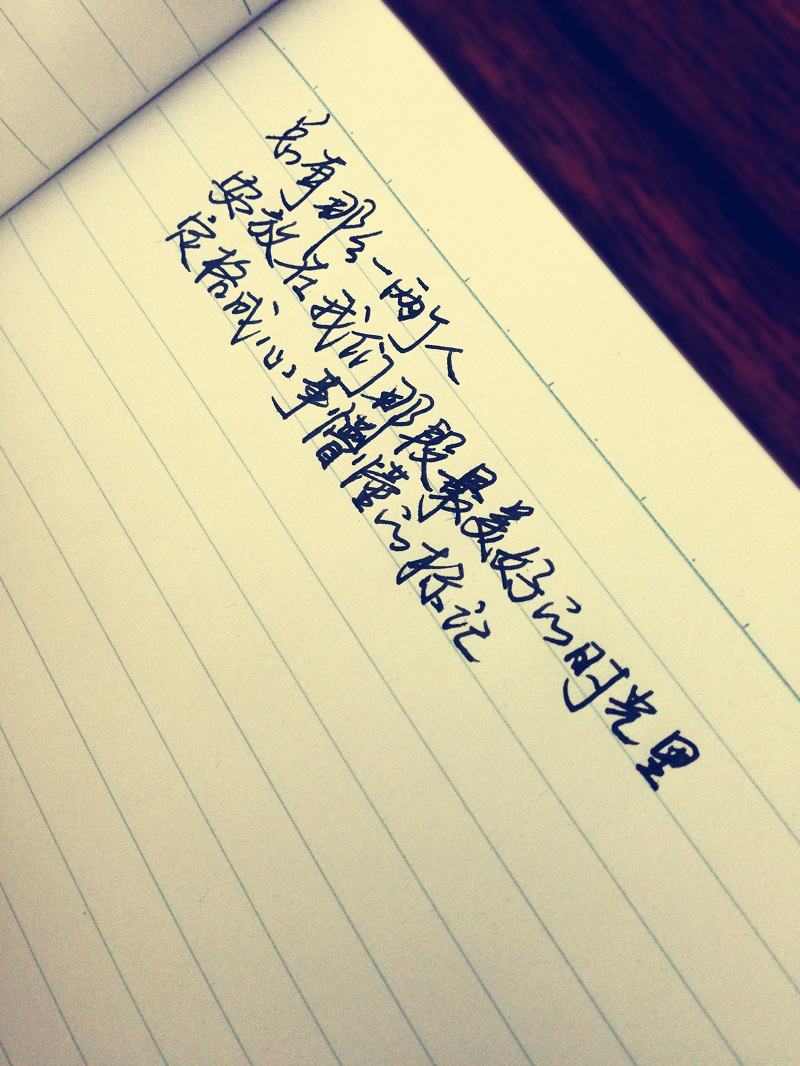 总有那么一两个人
安放在我们那段最美好的时光里
定格成心事懵懂的标记